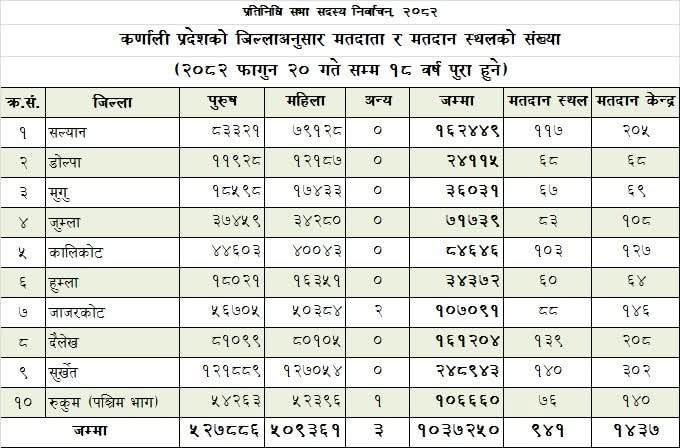 प्रतिनिधि सभा सदस्य निर्वाचन, २०८२
कर्णाली प्रदेशको जिल्लाअनुसार मतदाता र मतदान स्थलको संख्या
(२०८२ फागुन २० गते सम्म १८ वर्ष पुरा हुने)
क्र.सं. जिल्ला पुरुष महिला अन्य जम्मा मतदान स्थल मतदान केन्द्र
१ सल्यान ८३३२१ ७९१२८ ० १६२४४९ ११७ २०५
२ डोल्पा ११९२८ १२१८७ ० २४११५ ६८ ६८
३ मुगु १८५९८ १७४३३ ० ३६०३१ ६७ ६९
४ जुम्ला ३७४५९ ३४२८० ० ७१७३९ ८३ १०८
५ कालिकोट ४४६०३ ४००४३ ० ८४६४६ १०३ १२७
६ हुम्ला १८०२१ १६३५१ ० ३४३७२ ६० ६४
७ जाजरकोट ५६७०५ ५०३८४ २ १०७०९१ ८८ १४६
८ दैलेख ८१०९९ ८०१०५ ० १६१२०४ १३९ २०८
९ सुर्खेत १२१८८९ १२७०५४ ० २४८९४३ १४० ३०२
१० रुकुम (पश्चिम भाग) ५४२६३ ५२३९६ १ १०६६६० ७६ १४०
जम्मा ५२७८८६ ५०९३६१ ३ १०३७२५० ९४१ १४३७